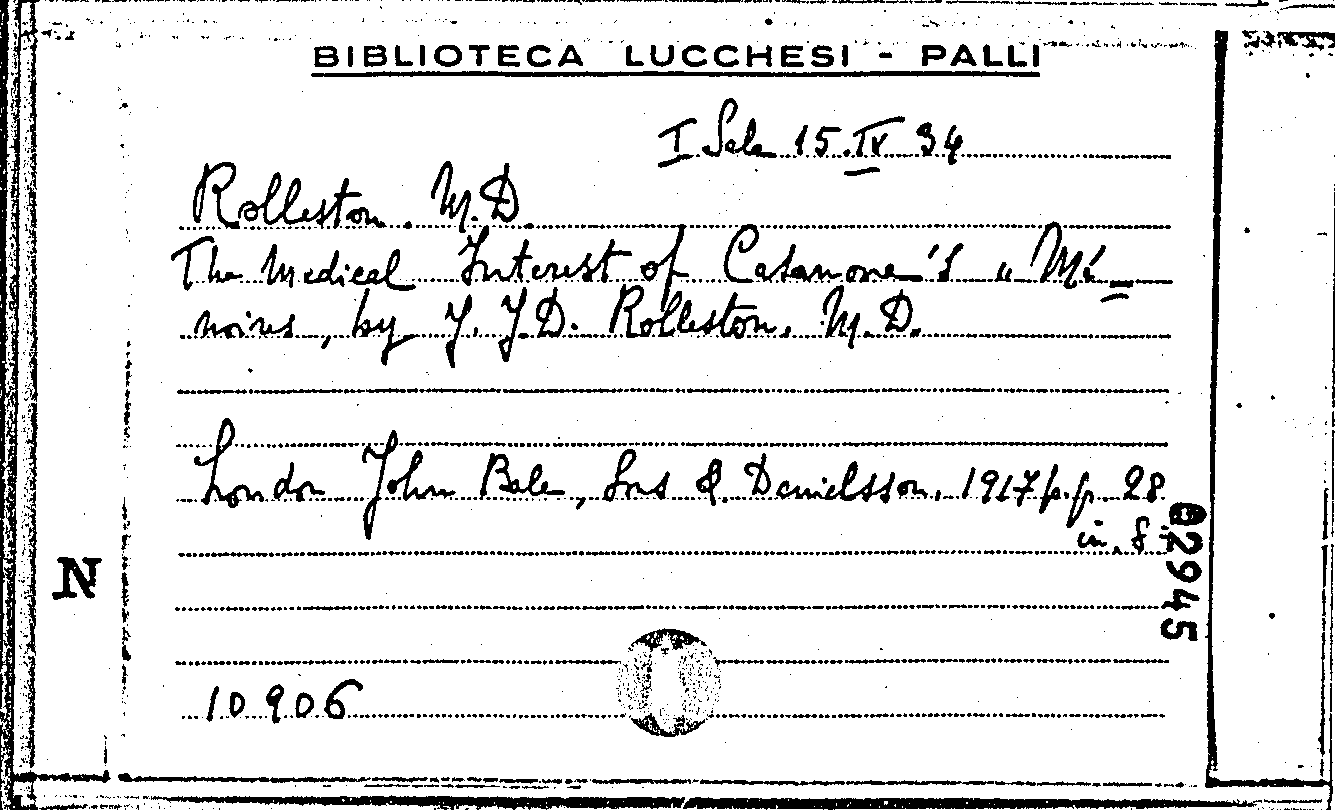 BIBLIOTECA LUCCHESI - PALLI
I Sala 15.IV 34
Rolleston. M.D.
The Medical Interest of Casanova's „ Mé-
noires, by J. J.D. Rolleston. M.D.
London John Bale, Sns & Danielsson. 1917 p.p. 28
in. 8.
02945
N
10906